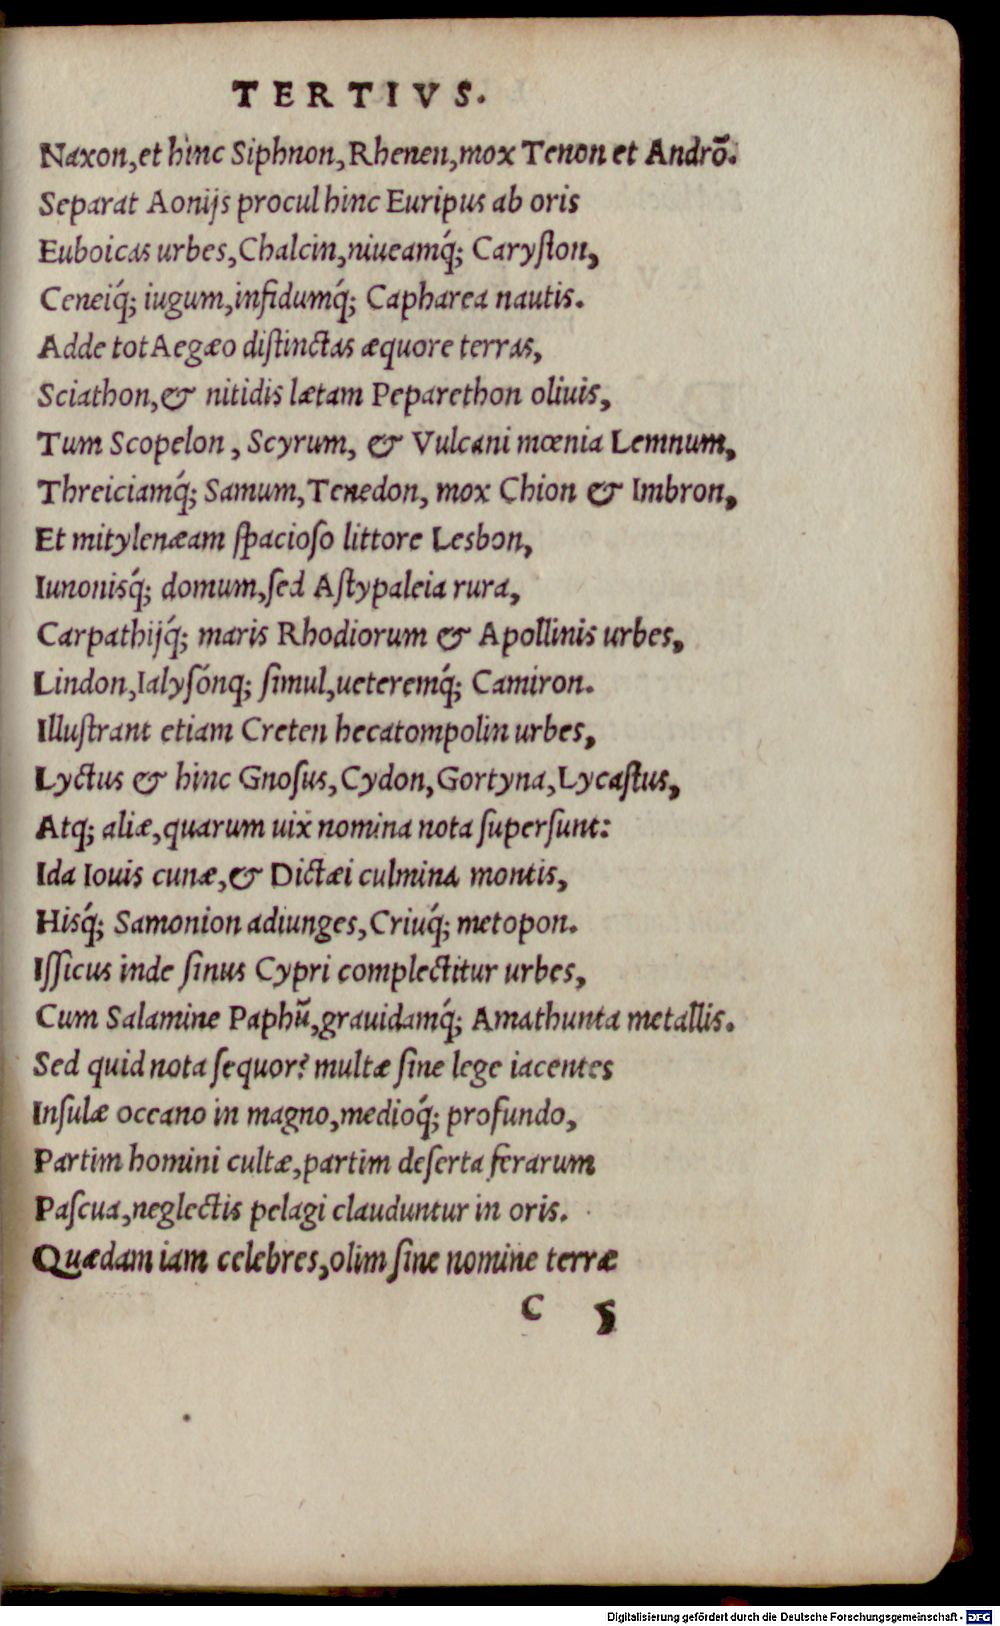 TERTIVS.
Naxon,et hinc Siphnon,Rhenen,mox Tenon et Andrõ.
Separat Aonijs procul hinc Euripus ab oris
Euboicas urbes,Chalcin,niueamq́; Caryſton,
Ceneiq́; iugum,infidumq́; Capharea nautis.
Adde tot Aegæo diſtinctas æquore terras,
Sciathon,& nitidis lætam Peparethon oliuis,
Tum Scopelon , Scyrum, & Vulcani mœnia Lemnum,
Threiciamq́; Samum,Tenedon, mox Chion & Imbron,
Et mitylenæam ſpacioſo littore Lesbon,
Iunonisq́; domum,ſed Aſtypaleia rura,
Carpathijq́; maris Rhodiorum & Apollinis urbes,
Lindon,Ialyſónq; ſimul,ueteremq́; Camiron.
Illuſtrant etiam Creten hecatompolin urbes,
Lyctus & hinc Gnoſus,Cydon,Gortyna,Lycaſtus,
Atq; aliæ,quarum uix nomina nota ſuperſunt:
Ida Iouis cunæ,& Dictæi culmina montis,
Hisq́; Samonion adiunges,Criuq́; metopon.
Iſſicus inde ſinus Cypri complectitur urbes,
Cum Salamine Paphũ,grauidamq́; Amathunta metallis.
Sed quid nota ſequor? multæ ſine lege iacentes
Inſulæ oceano in magno,medioq́; profundo,
Partim homini cultæ,partim deſerta ferarum
Paſcua,neglectis pelagi clauduntur in oris.
Quædam iam celebres,olim ſine nomine terræ
C 5
Digitalisierung gefördert durch die Deutsche Forschungsgemeinschaft - DFG